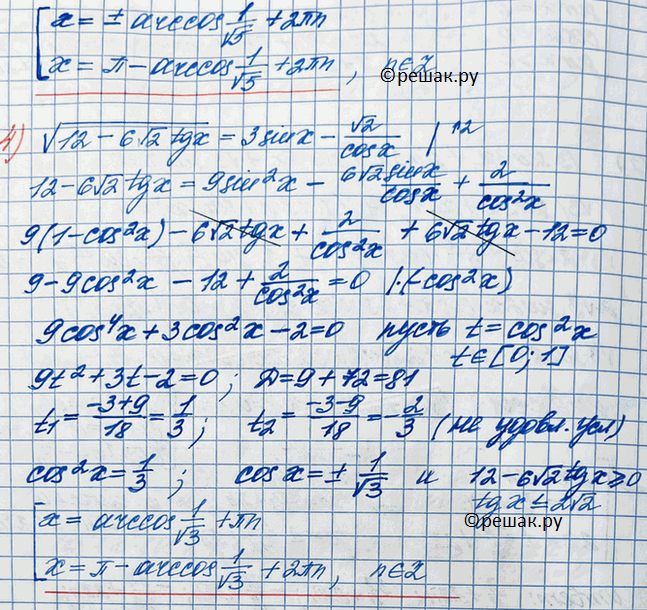 x = ± arccos 1/√5 + 2πn
x = π - arccos 1/√5 + 2πn, n∈Z
©решак.ру
4) √(12 - 6√2 tgx) = 3sinx - √2/cosx |↑2
12 - 6√2 tgx = 9sin²x - 6√2sinx/cosx + 2/cos²x
9(1-cos²x) - 6√2tgx + 2/cos²x + 6√2tgx - 12 = 0
9 - 9cos²x - 12 + 2/cos²x = 0 |·(-cos²x)
9cos⁴x + 3cos²x - 2 = 0 пусть t = cos²x
t∈[0;1]
9t² + 3t - 2 = 0; D = 9 + 72 = 81
t₁ = -3+9/18 = 1/3; t₂ = -3-9/18 = -2/3 (не удовл. усл)
cos²x = 1/3; cosx = ± 1/√3 и 12 - 6√2tgx ≥ 0
tgx ≤ 2√2
©решак.ру
x = arccos 1/√3 + πn
x = π - arccos 1/√3 + 2πn, n∈Z